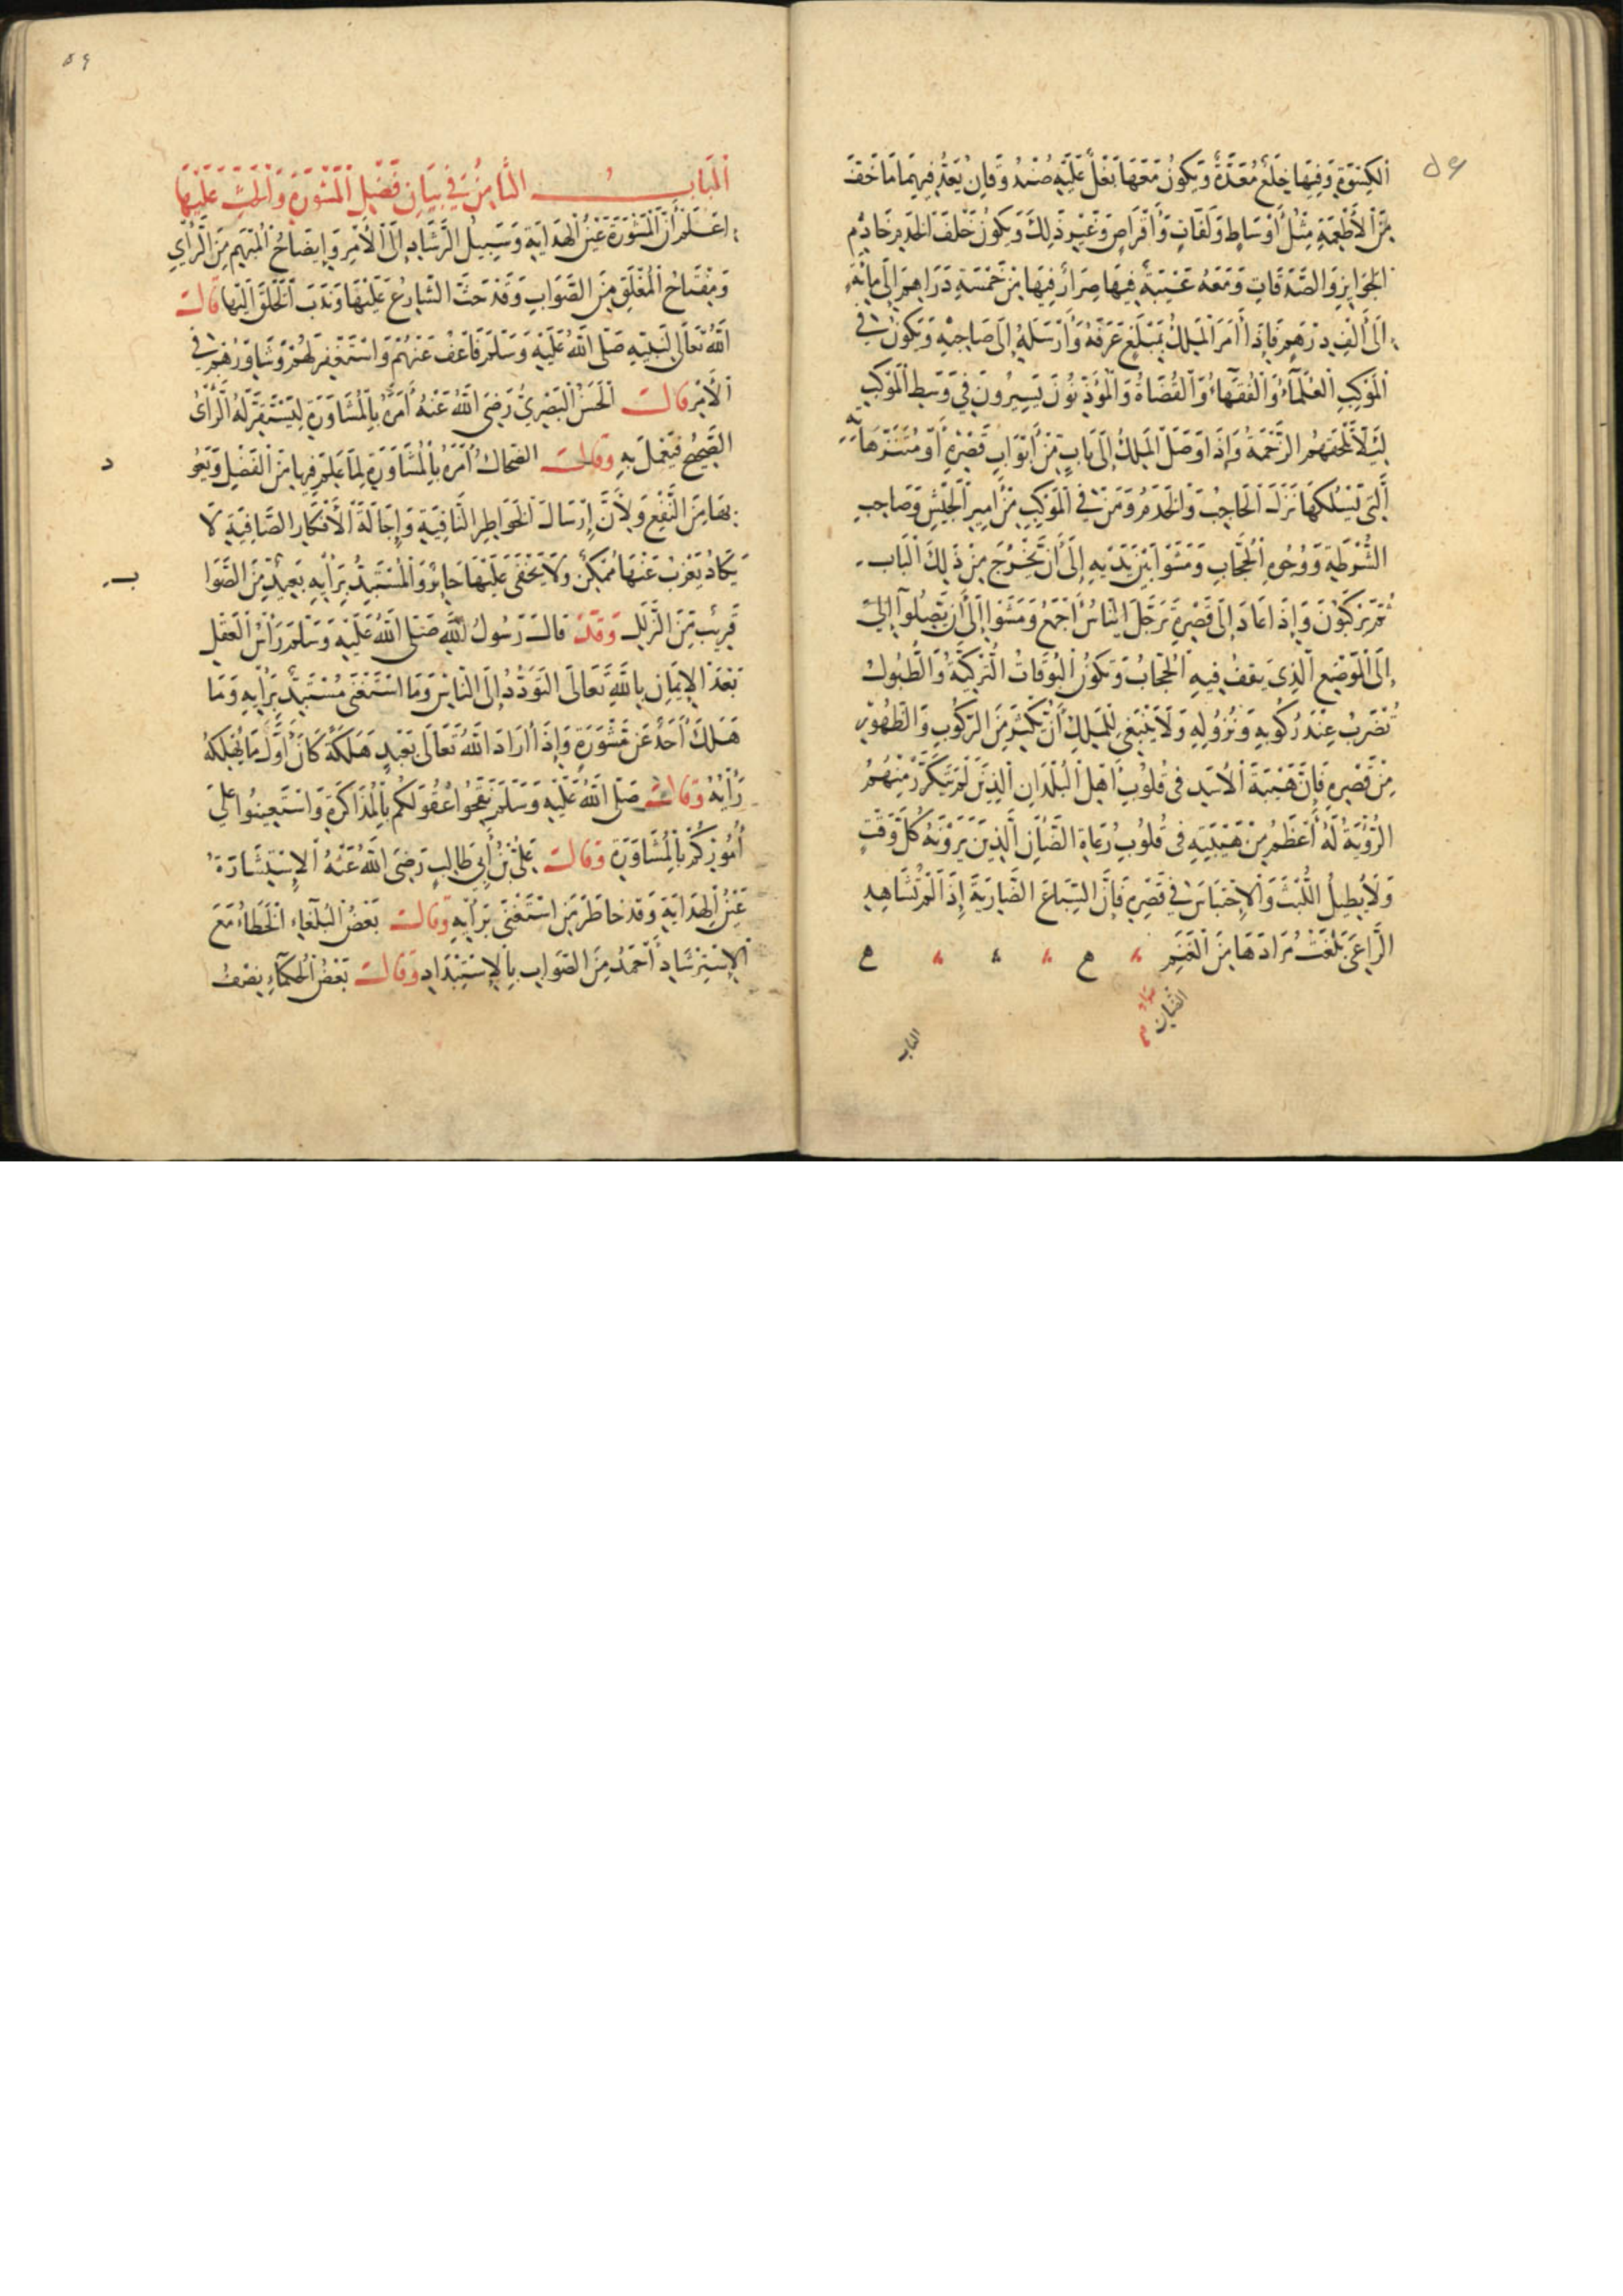 ٥٩
اَلْكِسْوَةِ وَفِيهَا خِلَعٌ مُعَدَّةٌ وَيَكُونُ مَعَهَا بَغْلٌ عَلَيْهِ صُنْدُوقَانِ يُعَدُّ فِيهِمَا مَا خَفَّ
مِنَ الْأَطْعِمَةِ مِثْلُ أَوْسَاطٍ وَلَفَّاتٍ وَأَقْرَاصٍ وَغَيْرِ ذَلِكَ وَيَكُونُ خَلْفَ الْخَدَمِ خَادِمُ
الْجَوَائِزِ وَالصَّدَقَاتِ وَمَعَهُ عَيْبَةٌ فِيهَا صِرَارٌ فِيهَا مِنْ خَمْسَةِ دَرَاهِمَ إِلَى مِائَةٍ
إِلَى أَلْفِ دِرْهَمٍ فَإِذَا أَمَرَ الْمَلِكُ بِمَبْلَغٍ عَرَفَهُ وَأَرْسَلَهُ إِلَى صَاحِبِهِ وَيَكُونُ فِي
الْمَوْكِبِ الْعُلَمَاءُ وَالْفُقَهَاءُ وَالْقُضَاةُ وَالْمُؤَذِّنُونَ يَسِيرُونَ فِي وَسَطِ الْمَوْكِبِ
لِئَلَّا تَلْحَقَهُمُ الزَّحْمَةُ وَإِذَا وَصَلَ الْمَلِكُ إِلَى بَابٍ مِنْ أَبْوَابِ قَصْرِهِ أَوْ مُتَنَزَّهَاتِهِ
الَّتِي يَسْلُكُهَا نَزَلَ الْحَاجِبُ وَالْخَدَمُ وَمَنْ فِي الْمَوْكِبِ مِنْ أَمِيرِ الْجَيْشِ وَصَاحِبِ
الشُّرْطَةِ وَوُجُوهِ الْحُجَّابِ وَمَشَوْا بَيْنَ يَدَيْهِ إِلَى أَنْ يَخْرُجَ مِنْ ذَلِكَ الْبَابِ
ثُمَّ يَرْكَبُونَ وَإِذَا عَادَ إِلَى قَصْرِهِ تَرَجَّلَ النَّاسُ أَجْمَعُ وَمَشَوْا إِلَى أَنْ يَصِلُوا إِلَى
إِلَى الْمَوْضِعِ الَّذِي يَقِفُ فِيهِ الْحُجَّابُ وَتَكُونُ الْبُوقَاتُ التُّرْكِيَّةُ وَالطُّبُولُ
تُضْرَبُ عِنْدَ رُكُوبِهِ وَنُزُولِهِ وَلَا يَنْبَغِي لِلْمَلِكِ أَنْ يُكْثِرَ مِنَ الرُّكُوبِ وَالظُّهُورِ
مِنْ قَصْرِهِ فَإِنَّ هَيْبَةَ الْأَسَدِ فِي قُلُوبِ أَهْلِ الْبُلْدَانِ الَّذِينَ لَمْ تَتَكَرَّرْ مِنْهُمُ
الرُّؤْيَةُ لَهُ أَعْظَمُ مِنْ هَيْبَتِهِ فِي قُلُوبِ رُعَاةِ الضَّأْنِ الَّذِينَ يَرَوْنَهُ كُلَّ وَقْتٍ
وَلَا يُطِيلُ اللُّبْثَ وَالْاِحْتِبَاسَ فِي قَصْرِهِ فَإِنَّ السِّبَاعَ الضَّارِيَةَ إِذَا لَمْ تُشَاهِدِ
الرَّاعِيَ بَلَغَتْ مُرَادَهَا مِنَ الْغَنَمِ
الضَّأْنِ
الباب
٥٩
اَلْبَابُ الثَّامِنُ فِي بَيَانِ فَضْلِ الْمَشُورَةِ وَالْحَثِّ عَلَيْهَا
اِعْلَمْ أَنَّ الْمَشُورَةَ عَيْنُ الْهِدَايَةِ وَسَبِيلُ الرَّشَادِ إِلَى الْأَمْرِ وَإِيضَاحُ الْمُبْهَمِ مِنَ الرَّأْيِ
وَمِفْتَاحُ الْمُغْلَقِ مِنَ الصَّوَابِ وَقَدْ حَثَّ الشَّارِعُ عَلَيْهَا وَنَدَبَ الْخَلْقَ إِلَيْهَا قَالَ
اللَّهُ تَعَالَى لِنَبِيِّهِ صَلَّى اللَّهُ عَلَيْهِ وَسَلَّمَ فَاعْفُ عَنْهُمْ وَاسْتَغْفِرْ لَهُمْ وَشَاوِرْهُمْ فِي
الْأَمْرِ قَالَ الْحَسَنُ الْبَصْرِيُّ رَضِيَ اللَّهُ عَنْهُ أَمَرَهُ بِالْمُشَاوَرَةِ لِيَسْتَقِرَّ لَهُ الرَّأْيُ
الصَّحِيحُ فَيَعْمَلَ بِهِ وَقَالَ الضَّحَّاكُ أَمَرَهُ بِالْمُشَاوَرَةِ لِمَا عَلِمَ فِيهَا مِنَ الْفَضْلِ وَيَعُو
د
بِهَا مِنَ النَّفْعِ وَلِأَنَّ إِرْسَالَ الْخَوَاطِرِ الثَّاقِبَةِ وَإِجَالَةَ الْأَفْكَارِ الصَّافِيَةِ لَا
يَكَادُ يَعْزُبُ عَنْهَا مُمْكِنٌ وَلَا يَخْفَى عَلَيْهَا جَائِزٌ وَالْمُسْتَبِدُّ بِرَأْيِهِ بَعِيدٌ مِنَ الصَّوَا
ب
قَرِيبٌ مِنَ الزَّلَلِ وَقَدْ قَالَ رَسُولُ اللَّهِ صَلَّى اللَّهُ عَلَيْهِ وَسَلَّمَ رَأْسُ الْعَقْلِ
بَعْدَ الْإِيمَانِ بِاللَّهِ تَعَالَى التَّوَدُّدُ إِلَى النَّاسِ وَمَا اسْتَغْنَى مُسْتَبِدٌّ بِرَأْيِهِ وَمَا
هَلَكَ أَحَدٌ عَنْ مَشُورَةٍ وَإِذَا أَرَادَ اللَّهُ تَعَالَى بِعَبْدٍ هَلَكَةً كَانَ أَوَّلَ مَا يُهْلِكُهُ
رَأْيُهُ وَقَالَ صَلَّى اللَّهُ عَلَيْهِ وَسَلَّمَ نَقِّحُوا عُقُولَكُمْ بِالْمُذَاكَرَةِ وَاسْتَعِينُوا عَلَى
أُمُورِكُمْ بِالْمُشَاوَرَةِ وَقَالَ عَلِيُّ بْنُ أَبِي طَالِبٍ رَضِيَ اللَّهُ عَنْهُ الْاِسْتِشَارَةُ
عَيْنُ الْهِدَايَةِ وَقَدْ خَاطَرَ مَنِ اسْتَغْنَى بِرَأْيِهِ وَقَالَ بَعْضُ الْبُلَغَاءِ الْخَطَاءُ مَعَ
الْاِسْتِرْشَادِ أَحْمَدُ مِنَ الصَّوَابِ بِالْاِسْتِبْدَادِ وَقَالَ بَعْضُ الْحُكَمَاءِ نِصْفُ